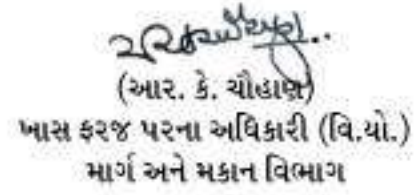 (આર. કે. ચૌહાણ)
ખાસ ફરજ પરના અધિકારી (વિ.યો.)
માર્ગ અને મકાન વિભાગ